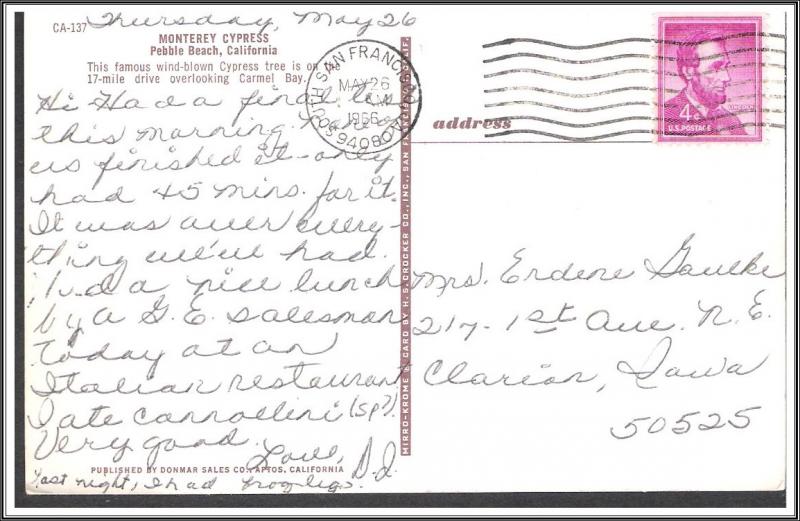 Thursday, May 26
CA-137
MONTEREY CYPRESS
Pebble Beach, California
This famous wind-blown Cypress tree is on the
17-mile drive overlooking Carmel Bay.
Hi Had a final test
this morning. None of
us finished it - only
had 45 mins. for it.
It was over every-
thing we've had.
Had a nice lunch
by a G.E. salesman
today at an
Italian restaurant
I ate cannollini (sp?).
Very good.
Love, D.J.
PUBLISHED BY DONMAR SALES CO. APTOS, CALIFORNIA
Last night, I had frog legs.
MIRRO-KROME CARD BY H. S. CROCKER CO., INC., SAN FRANCISCO, CALIF.
SAN FRANCISCO
MAY 26
PM
1966
94080
address
4¢
LINCOLN
U.S. POSTAGE
Mrs. Erdene Gaulke
217 - 1st Ave. N.E.
Clarion, Iowa
50525